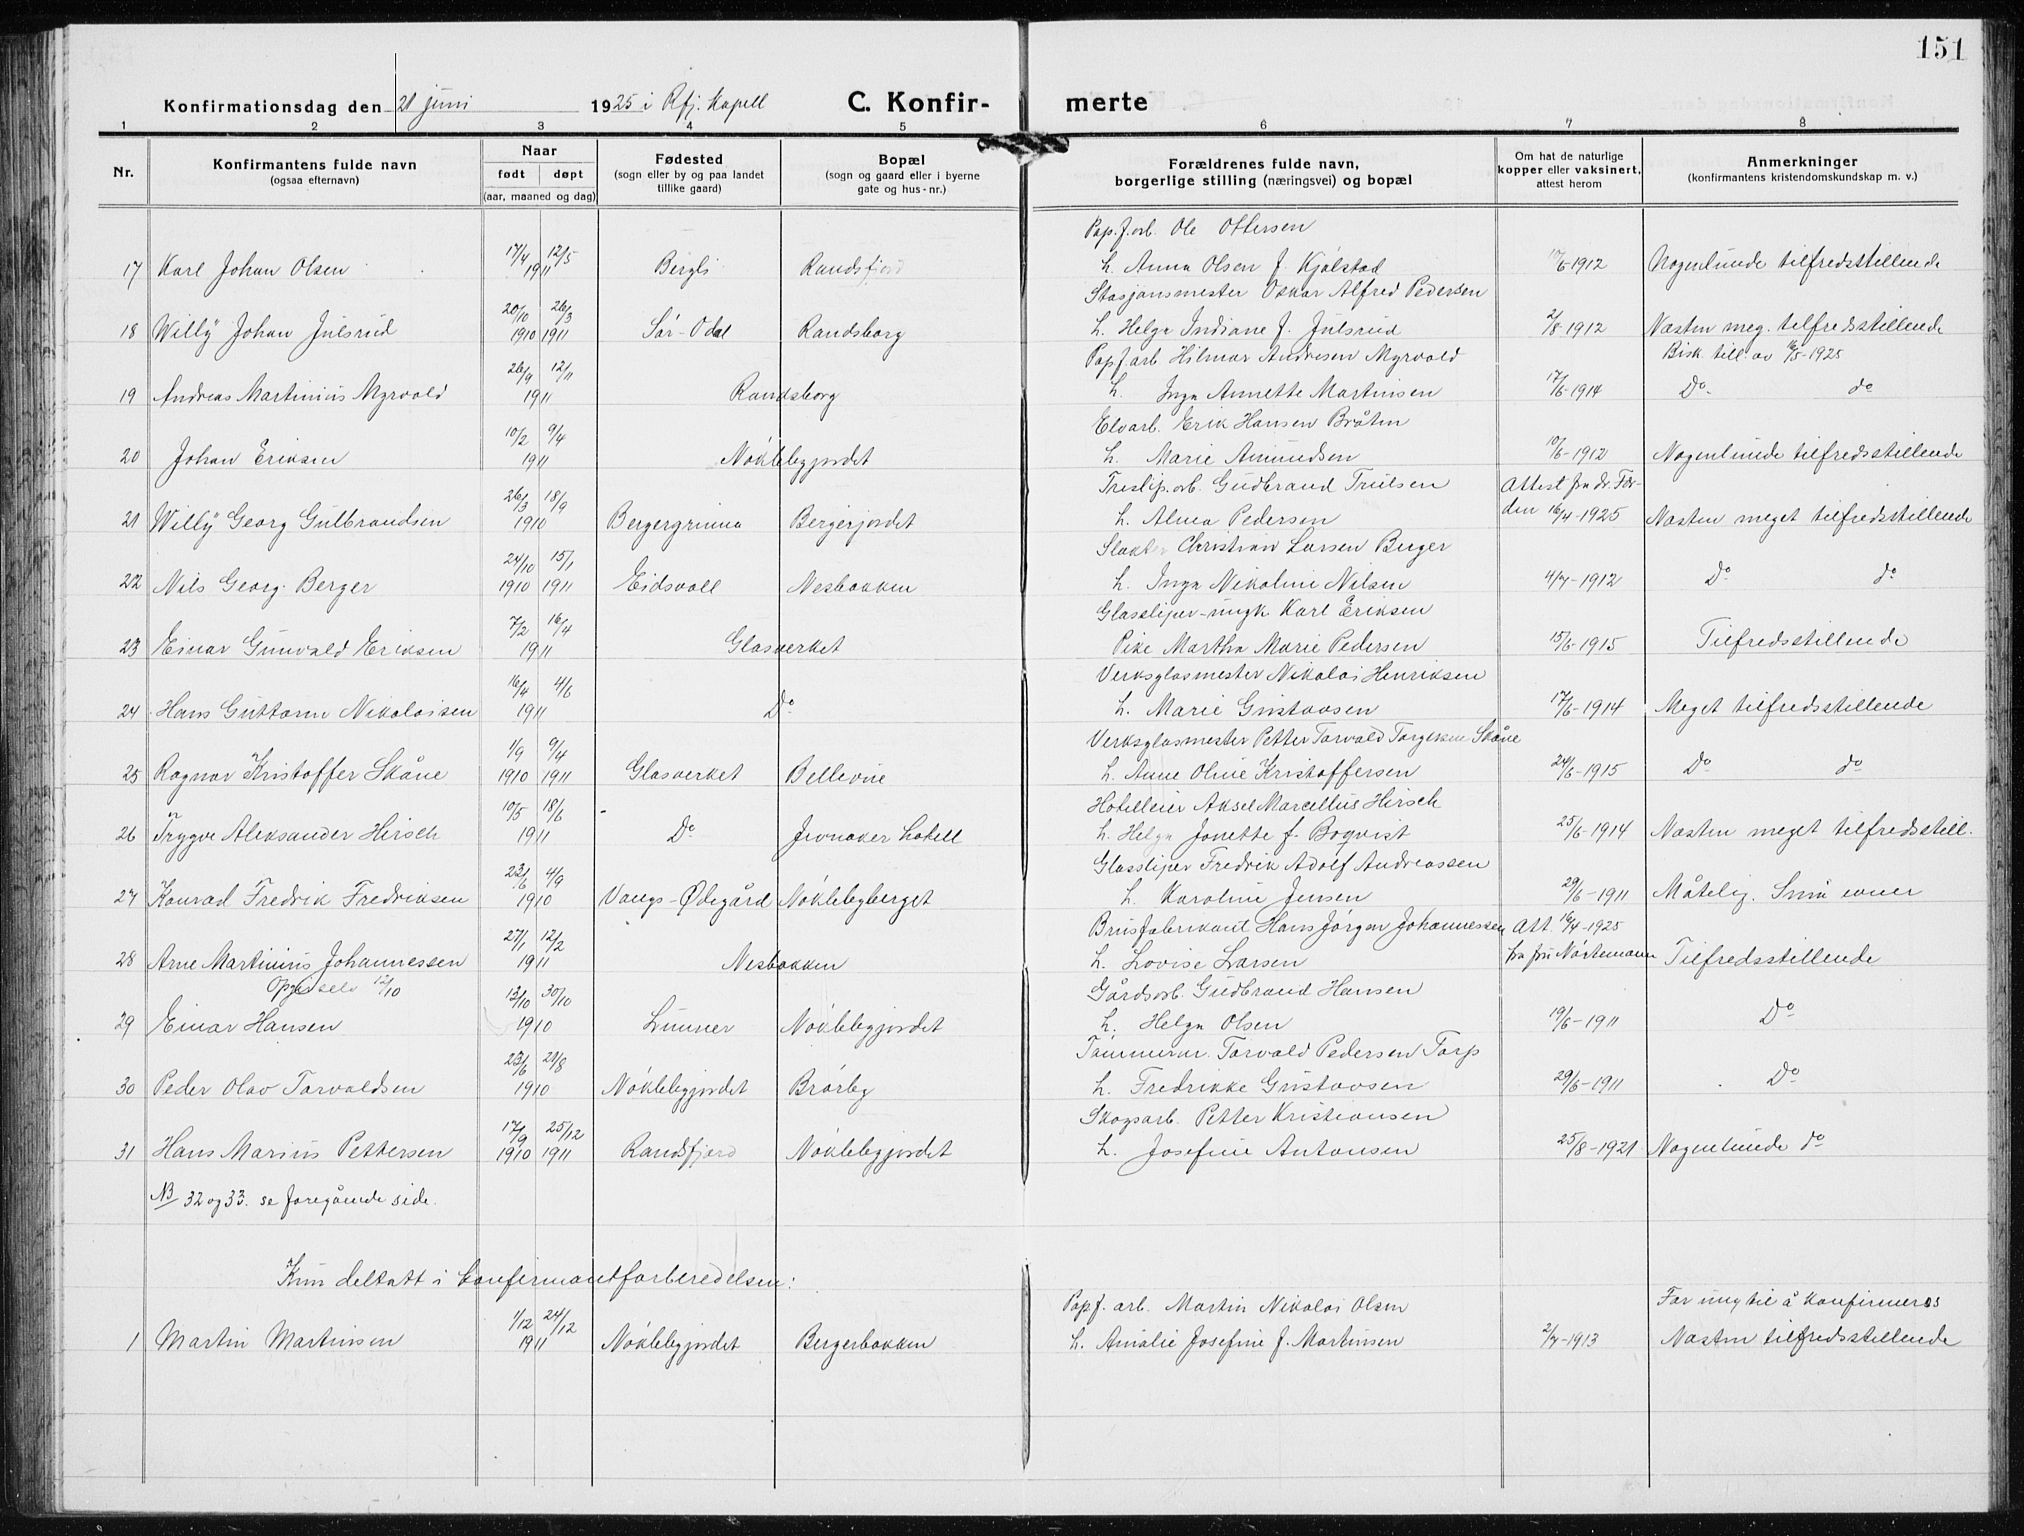 151
Konfirmationsdag den 21 juni 1925 i Rfj. Kapell C. Konfir- merte
1 2 3 4 5 6 7 8
Nr. Konfirmantens fulde navn (ogsaa efternavn) Naar født døpt (aar, maaned og dag) Fødested (sogn eller by og paa landet tillike gaard) Bopæl (sogn og gaard eller i byerne gate og hus-nr.) Forældrenes fulde navn, borgerlige stilling (næringsvei) og bopæl Om hat de naturlige kopper eller vaksinert, attest herom Anmerkninger (konfirmantens kristendomskundskap m. v.)
Pap.f.arb. Ole Ottersen
17 Karl Johan Olsen 17/4 12/5 1911 Bergli Randsfjord h. Anna Olsen f. Kjölstad /6-1912 Nogenlunde tilfredsstillende
Stasjonsmester Oskar Alfred Pedersen
18 Willy Johan Julsrud 20/10 1910 26/3 1911 Sør-Odal Randsborg h. Helga Indiane f. Julsrud 2/8-1912 Næsten meg. tilfredsstillende
Papf.arb. Hilmar Andresen Myrvold Bisk. till. av 16/5-1925
19 Andreas Martinius Myrvold 26/9 12/11 1911 Randsborg h. Inga Annette Martinsen 17/6-1914 Do. do
Elvarb. Erik Hansen Bråten
20 Johan Eriksen 10/2 9/4 1911 Nøklebygjordet h. Marie Amundsen 10/6-1912 Nogenlunde tilfredsstillende
Treslip.arb. Gudbrand Trulsen Attest fra dr. För-
21 Willy Georg Gulbrandsen 26/3 18/9 1910 Bergergrinna Bergerjordet h. Alma Pedersen den 16/4-1925 Næsten meget tilfredsstillende
Slakter Christian Larsen Berger
22 Nils Georg Berger 24/10 1910 15/1 1911 Eidsvoll Nesbakken h. Inga Nikoline Nilsen 4/7-1912 Do do
Glassliper-ungk. Karl Eriksen
23 Einar Gunvald Eriksen 7/2 16/4 1911 Glasverket Pike Martha Marie Pedersen 15/6-1915 Tilfredsstillende
Verksglasmester Nikolai Henriksen
24 Hans Guttorm Nikolaisen 16/4 4/6 1911 Do h. Marie Gustavsen 17/6-1914 Meget tilfredsstillende
Verksglasmester Petter Torvald Torgersen Skåne
25 Ragnar Kristoffer Skåne 1/9 1910 9/4 1911 Glasverket Bellevue h. Anne Oline Kristoffersen 24/6-1915 Do do
Hotelleier Aksel Marcellius Hirsch
26 Trygve Aleksander Hirsch 10/5 18/6 1911 Do Jevnaker hotell h. Helga Jonette f. Boqvist 25/6-1914 Næsten meget tilfredsstill.
Glassliper Fredrik Adolf Andreassen
27 Konrad Fredrik Fredriksen 23/6 4/9 1910 Vangs-Ødegård Nøklebyberget h. Karoline Jensen 29/6-1911 Måtelig. Små evner
Brusfabrikant Hans Jørgen Johannessen Att. 16/4-1925
28 Arne Martinius Johannessen 27/1 12/2 1911 Nesbakken h. Lovise Larsen fra fru Nörtemann Tilfredsstillende
12/10 Gårdsarb. Gudbrand Hansen
29 Einar Hansen 13/10 30/10 1910 Lunner Nøklebygjordet h. Helga Olsen 19/6-1911 Do
Tömmerm. Torvald Pedersen Torp
30 Peder Olav Torvaldsen 23/6 21/8 1910 Nøklebygjordet Brörby h. Fredrikke Gustavsen 29/6-1911 Do
Skogsarb. Petter Kristiansen
31 Hans Marius Pettersen 17/9 1910 25/12 1911 Randsfjord Nøklebygjordet h. Josefine Antonsen 25/8-1921 Nogenlunde do
NB 32 og 33. se foregående side.
Kun deltatt i konfirmantforberedelsen:
Papf. arb. Martin Nikolai Olsen For ung til å konfirmeres
1 Martin Martinsen 1/12 24/12 1911 Nøklebygjordet Bergerbakken h. Amalie Josefine f. Martinsen 2/7-1913 Næsten tilfredsstillende